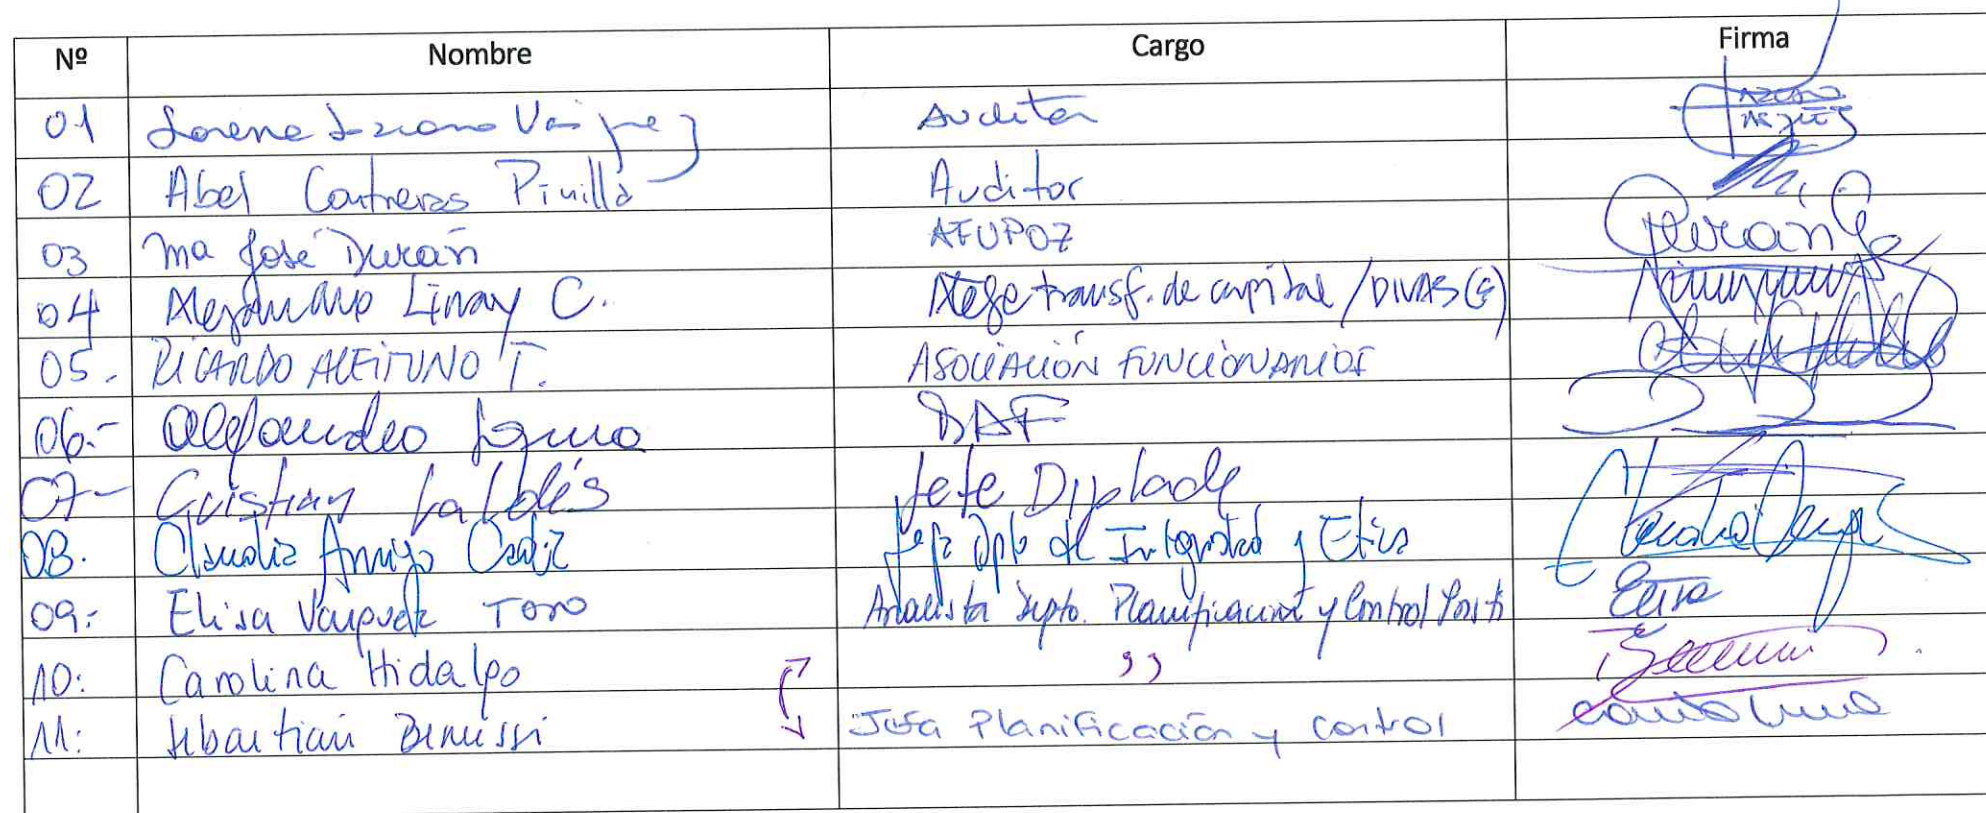 Nº Nombre Cargo Firma
01 Lorena Lozano Vásquez Auditor
02 Abel Contreras Pinilla Auditor
03 Ma José Durán AFUPOZ Durán
04 Alejandro Linay C. Jefe transf. de capital / DIVAS (S)
05.- RICARDO ACEITUNO T. ASOCIACIÓN FUNCIONARIOS
06.- Alejandro DAF
07- Cristian Valdés Jefe Diplade
08. Claudia Amigo Cadiz Jefa Dpto de Integridad y Etica
09.- Elisa Vasquez Toro Analista Depto. Planificación y Control Elisa
10: Carolina Hidalgo ,,
11: Sebastian Benussi Jefa Planificación y Control Carolina